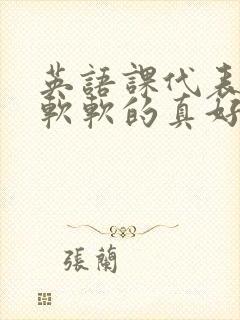 英語課代表
軟軟的真好
張蘭